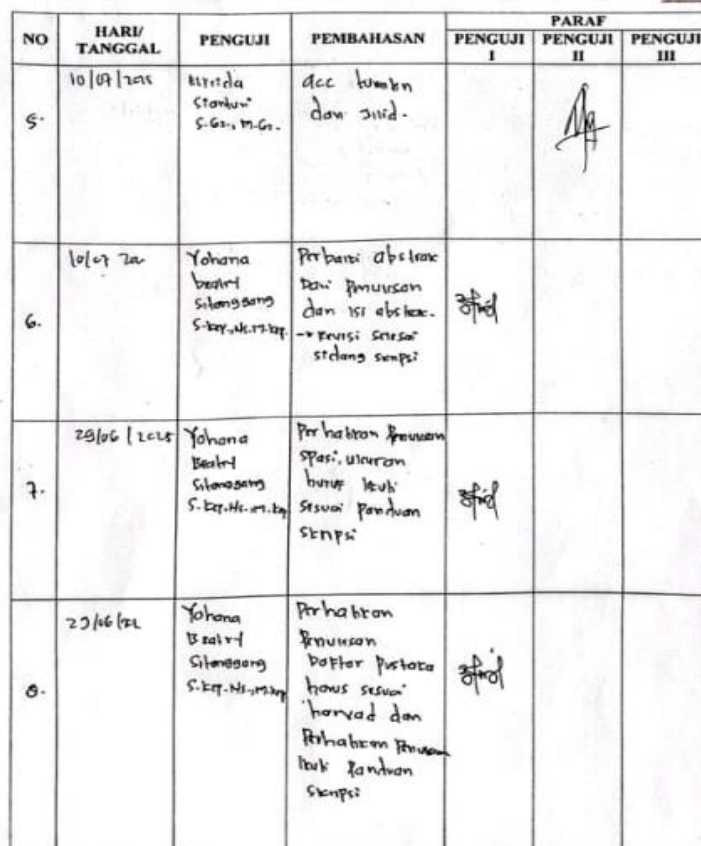 NO
HARI/
TANGGAL
PENGUJI
PEMBAHASAN
PARAF
PENGUJI
I
PENGUJI
II
PENGUJI
III
5.
10/07/2025
S.Gz., M.Gz.
acc
dan jilid.
6.
10/07
Yohana
Beatry
Sitanggang
S.kep.,Ns.,M.kep
Perbaiki abstrak
Dari Penulisan
dan isi abstrak.
→ Revisi selesai
sidang skripsi
7.
29/06/2025
Yohana
Beatry
Sitanggang
S.kep.,Ns.,M.kep
Perhatikan Penulisan
spasi, ukuran
huruf ikuti
sesuai Panduan
skripsi
8.
29/06
Yohana
Beatry
Sitanggang
S.kep.,Ns.,M.kep
Perhatikan
Penulisan
Daftar Pustaka
harus sesuai
harvad dan
Perhatikan Penulisan
ikuti Panduan
Skripsi